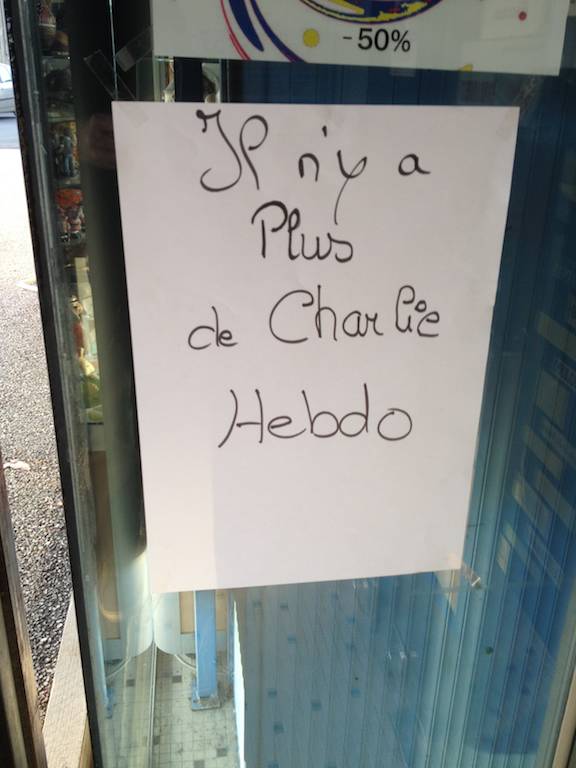 -50%
Il n'y a
Plus
de Charlie
Hebdo